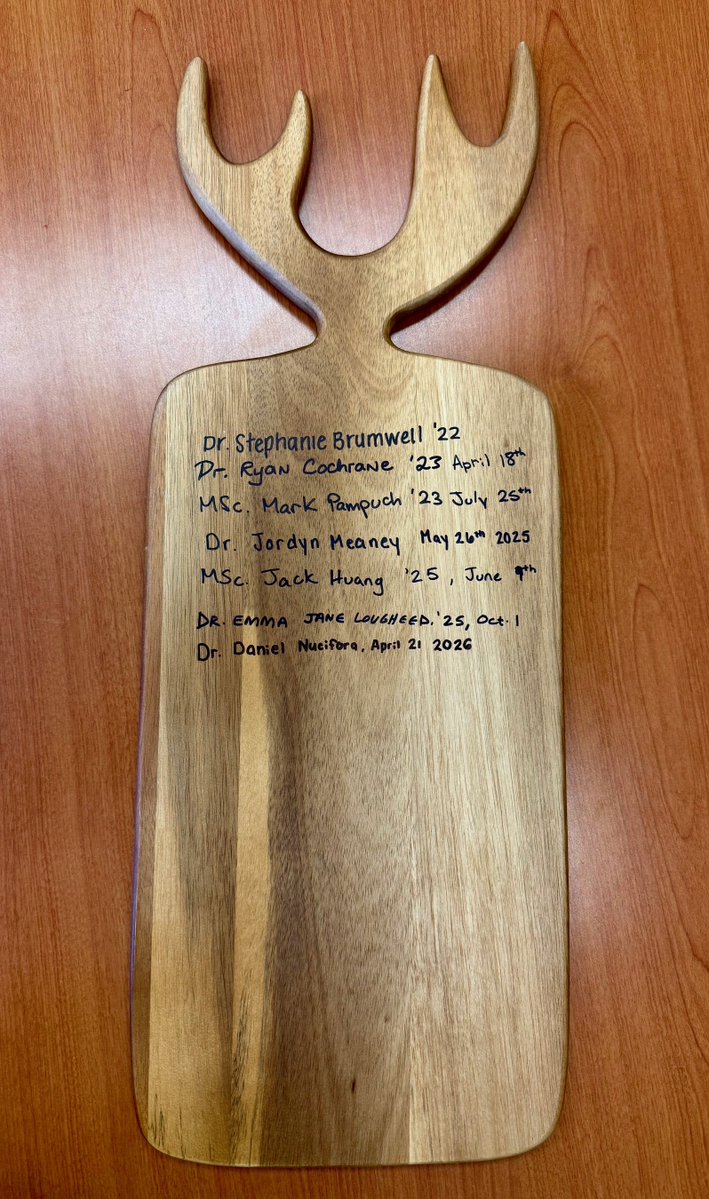 Dr. Stephanie Brumwell '22
Dr. Ryan Cochrane '23 April 18th
MSc. Mark Pampuch '23 July 25th
Dr. Jordyn Meaney May 26th 2025
MSc. Jack Huang '25, June 9th
DR. EMMA JANE LOUGHEED. '25, Oct. 1
Dr. Daniel Nucifora, April 21 2026